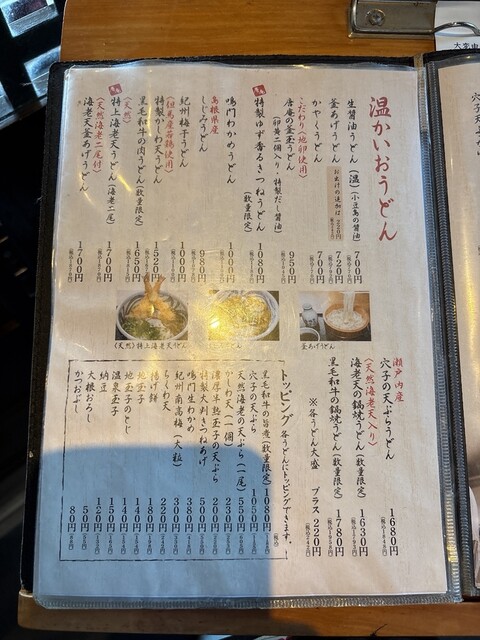 温かいおうどん
生醤油うどん (温) (小豆島の醤油) 700円
釜あげうどん 720円
かやくうどん 700円
こだわり〈地卵使用〉
唐庵の釜玉うどん 950円
(卵黄二個入り・特製だし醤油)
特製ゆず香るきつねうどん (数量限定) 1080円
鳴門わかめうどん 1000円
島根県産
しじみうどん 980円
紀州梅子うどん 1000円
特製かしわ天うどん 1520円
黒毛和牛の肉うどん (数量限定) 1650円
〈天然〉
特上海老天うどん (海老二尾) 1700円
〈天然海老二尾付〉
海老天釜あげうどん 1700円
(天然)特上海老天うどん
釜あげうどん
瀬戸内産
穴子の天ぷらうどん 1680円
〈天然海老天入り〉
海老天の鍋焼うどん (数量限定) 1630円
黒毛和牛の鍋焼うどん (数量限定) 1780円
※各うどん大盛 プラス 220円
トッピング 各うどんにトッピングできます。
黒毛和牛の旨煮 (数量限定) 1080円
穴子の天ぷら 1050円
天然海老の天ぷら (一尾) 550円
かしわ天 (一個) 230円
濃厚半熟玉子の天ぷら 200円
特製大判きつねあげ 500円
鳴門生わかめ 380円
紀州南高梅 (大粒) 300円
ちくわ天 220円
揚げ餅 180円
地玉子 140円
地玉子のとじ 140円
温泉玉子 150円
納豆 120円
大根おろし 50円
かつおぶし 80円